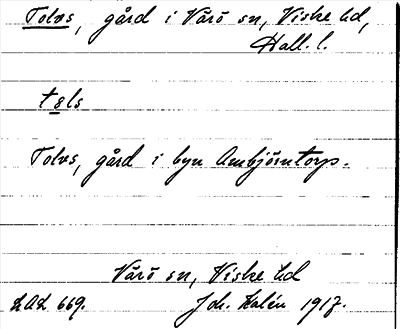 Tolvs, gård i Värö sn, Viske hd,
Hall. l.
tǫls
Tolvs, gård i byn Ambjörntorp.
Värö sn, Viske hd
LAL 669. Joh. Kalén 1917.